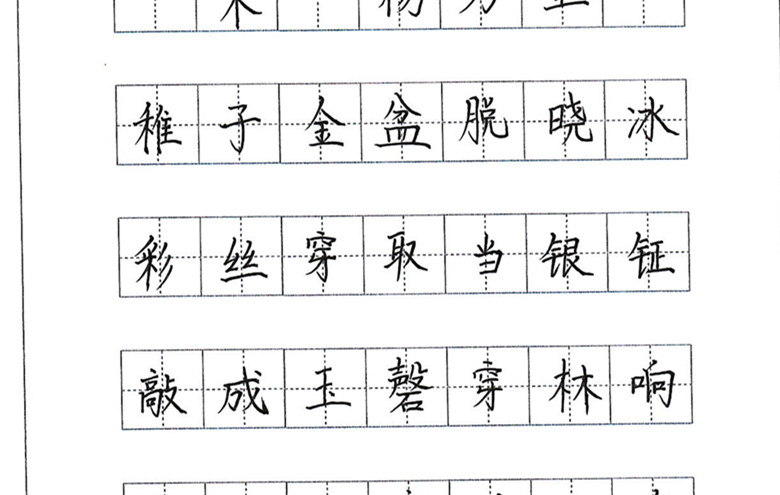 稚子金盆脱晓冰
彩丝穿取当银钲
敲成玉磬穿林响